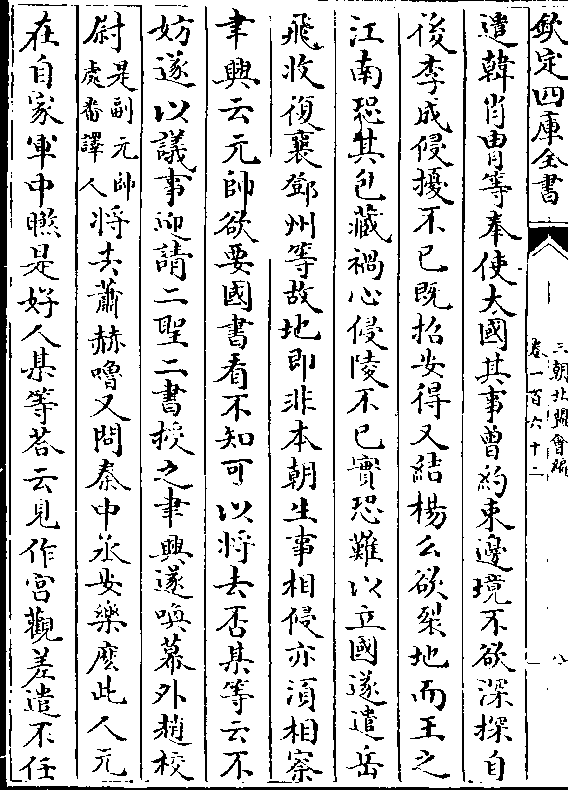 欽定四庫全書
三朝北盟會編
卷一百六十二
八
遣韓肖胄等奉使大國其事曾約束邊境不欲深探自
後李成侵擾不已既招安得又結楊么欲裂地而王之
江南恐其包藏禍心侵陵不已實恐難以立國遂遣岳
飛收復襄鄧州等故地即非本朝生事相侵亦須相察
聿興云元帥欲要國書看不知可以將去否某等云不
妨遂以議事迎請二聖二書授之聿興遂喚幕外趙校
尉是副元帥處番譯人將去蕭赫嚕又問秦中丞安樂麽此人元
在自家軍中㬠是好人某等荅云見作宮觀差遣不任